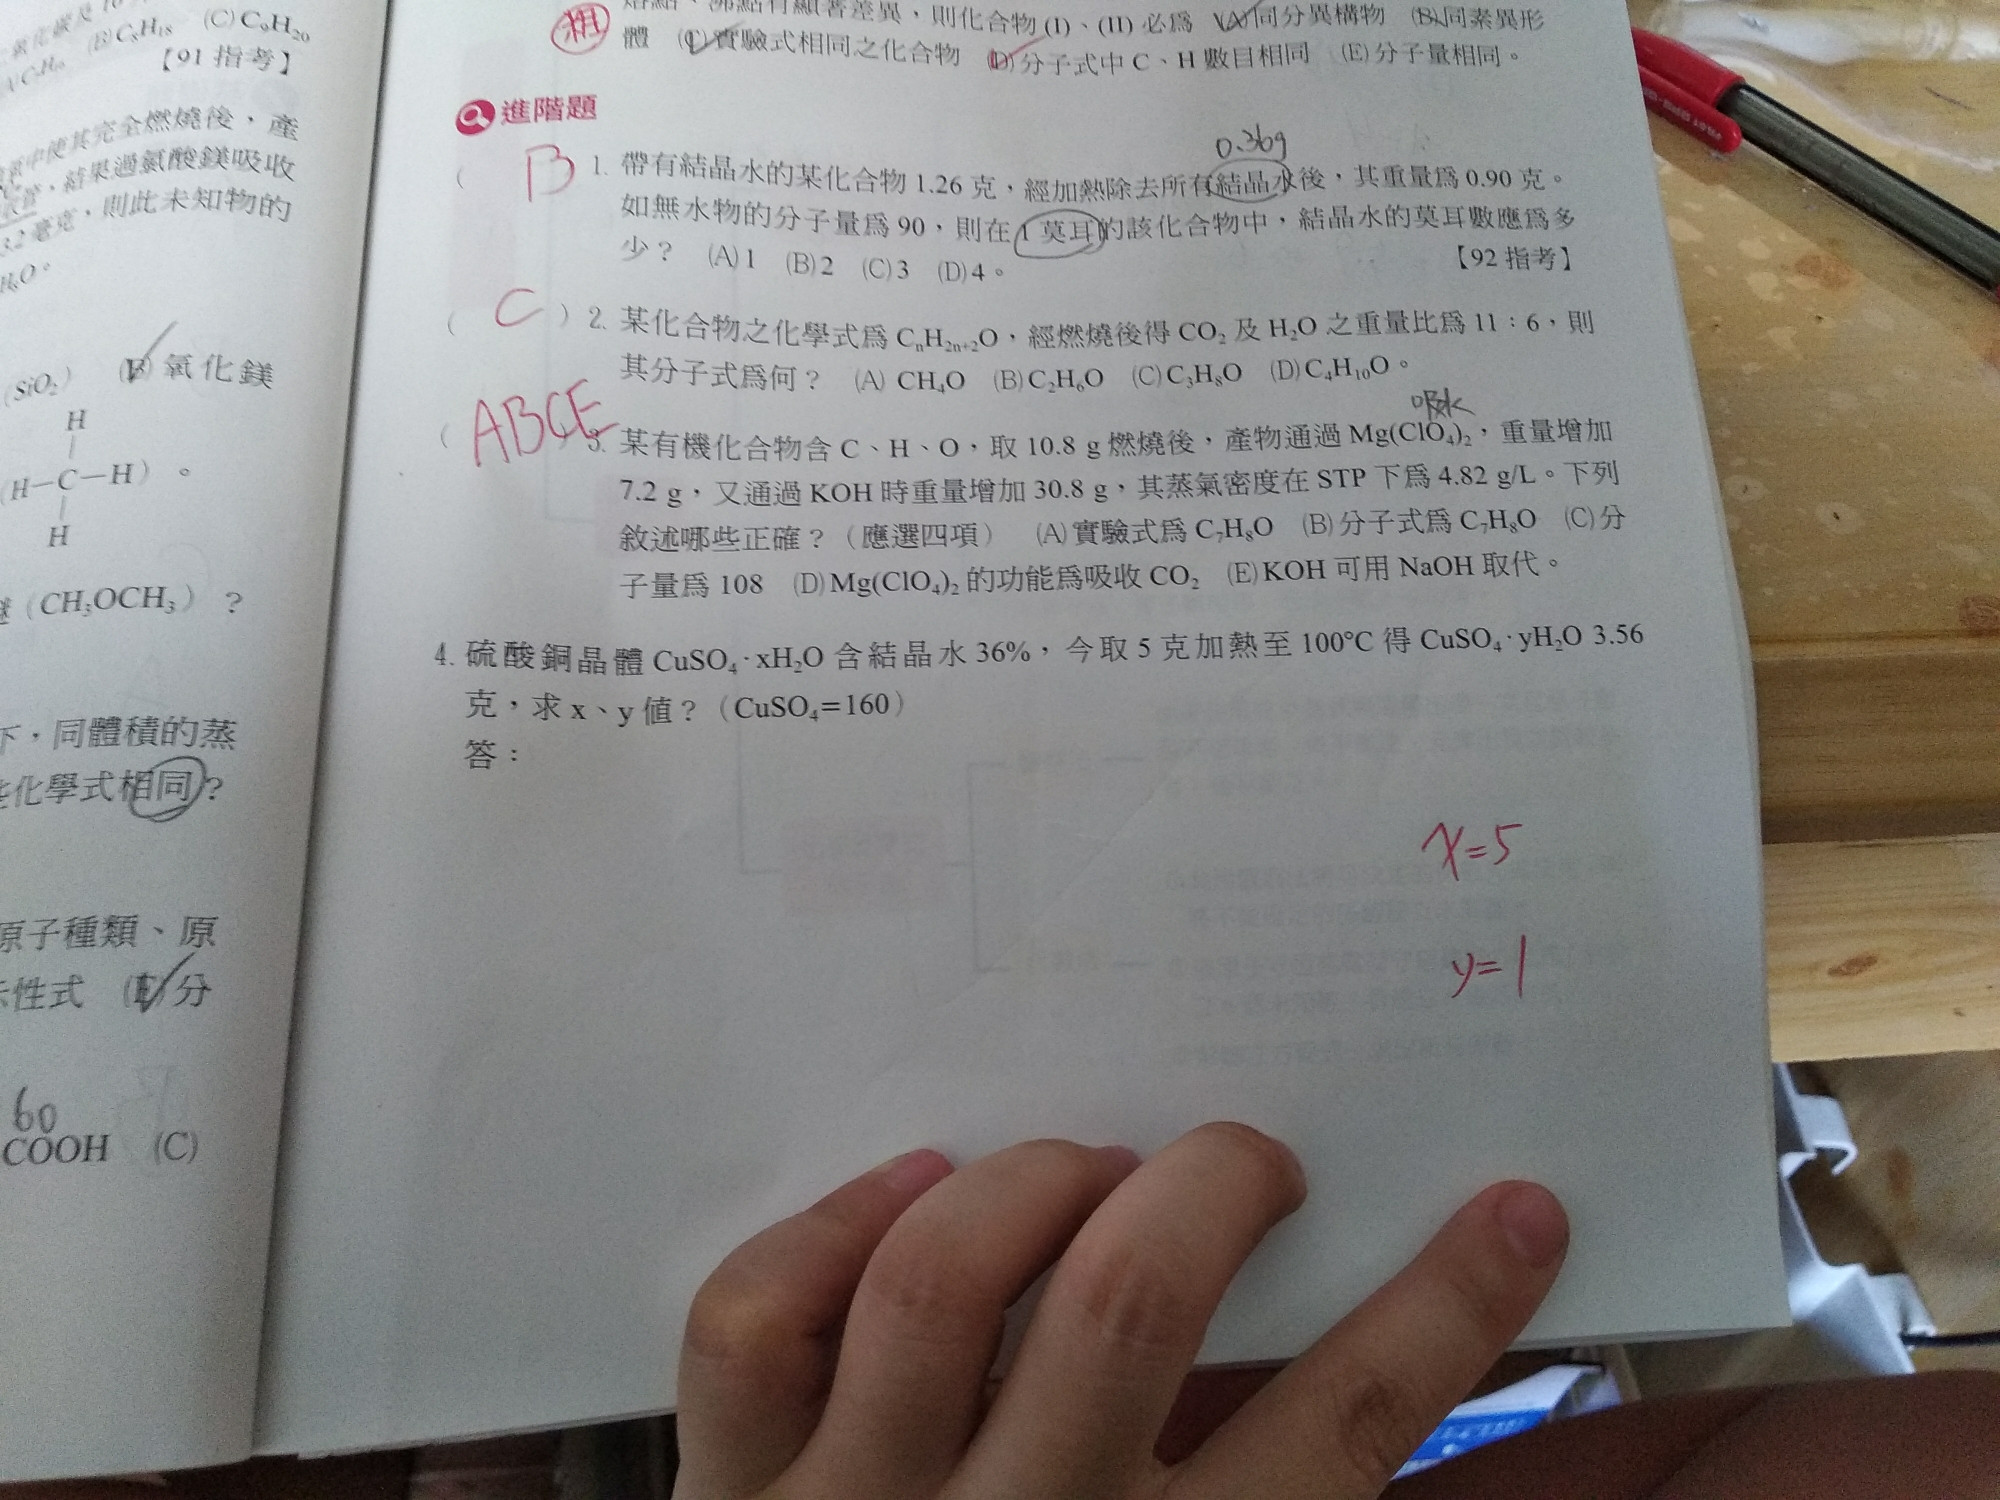 (B)C₈H₁₈ (C)C₉H₂₀
【91 指考】
氧中使其完全燃燒後，產
，結果過氯酸鎂吸收
3.2 毫克，則此未知物的
(SiO₂) (B)氧化鎂
H
|
(H－C－H)。
|
H
醚（CH₃OCH₃）？
下，同體積的蒸
化學式相同？
原子種類、原
示性式 (E)分
60
COOH (C)
粗
熔點、沸點有顯著差異，則化合物(I)、(II)必爲 (A)同分異構物 (B)同素異形
體 (C)實驗式相同之化合物 (D)分子式中 C、H 數目相同 (E)分子量相同。
進階題
0.36g
( B 1. 帶有結晶水的某化合物 1.26 克，經加熱除去所有結晶水後，其重量爲 0.90 克。
如無水物的分子量爲 90，則在 1 莫耳的該化合物中，結晶水的莫耳數應爲多
少？ (A)1 (B)2 (C)3 (D)4。 【92 指考】
( C ) 2. 某化合物之化學式爲 CₙH₂ₙ₊₂O，經燃燒後得 CO₂ 及 H₂O 之重量比爲 11：6，則
其分子式爲何？ (A) CH₄O (B)C₂H₆O (C)C₃H₈O (D)C₄H₁₀O。
吸水
( ABCE 3. 某有機化合物含 C、H、O，取 10.8 g 燃燒後，產物通過 Mg(ClO₄)₂，重量增加
7.2 g，又通過 KOH 時重量增加 30.8 g，其蒸氣密度在 STP 下爲 4.82 g/L。下列
敘述哪些正確？（應選四項） (A)實驗式爲 C₇H₈O (B)分子式爲 C₇H₈O (C)分
子量爲 108 (D)Mg(ClO₄)₂ 的功能爲吸收 CO₂ (E)KOH 可用 NaOH 取代。
4. 硫酸銅晶體 CuSO₄·xH₂O 含結晶水 36%，今取 5 克加熱至 100°C 得 CuSO₄·yH₂O 3.56
克，求 x、y 值？（CuSO₄＝160）
答：
x=5
y=1